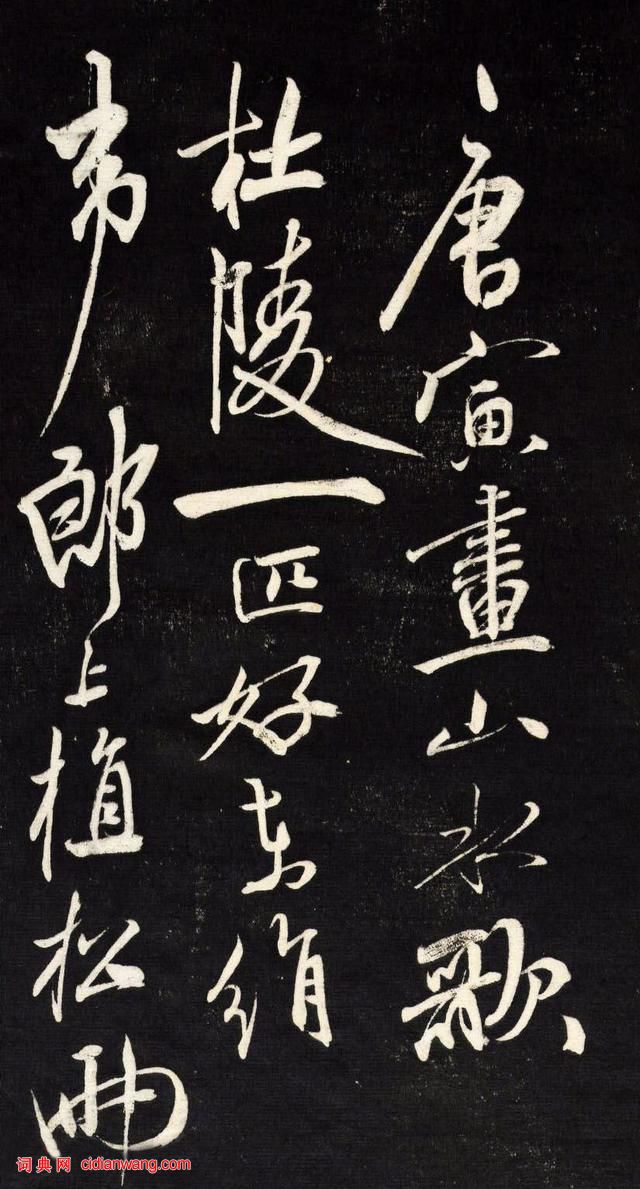 唐寅畫山水歌
杜陵一匹好東絹
韋郎上植松兩
词典网 cidianwang.com